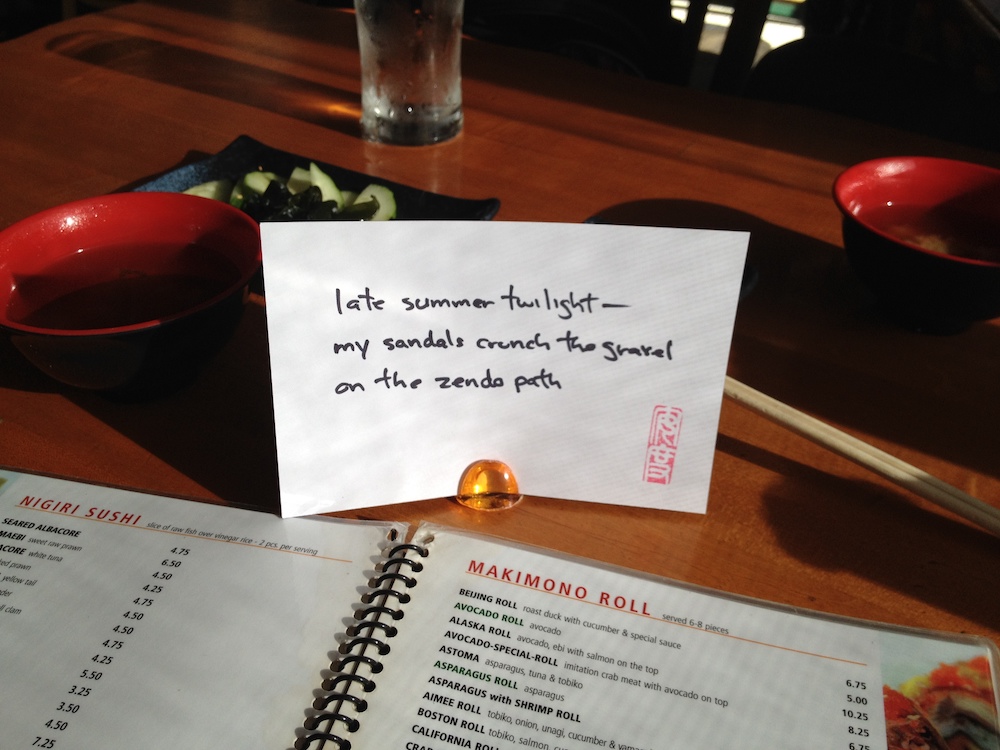 late summer twilight—
my sandals crunch the gravel
on the zendo path
NIGIRI SUSHI slice of raw fish over vinegar rice - 2 pcs. per serving
SEARED ALBACORE 4.75
MAEBI sweet raw prawn 6.50
ACORE white tuna 4.50
prawn 4.25
yellow tail 4.75
4.50
clam 4.50
4.75
4.25
5.50
3.25
3.50
4.50
7.25
MAKIMONO ROLL served 6-8 pieces
BEIJING ROLL roast duck with cucumber & special sauce 6.75
AVOCADO ROLL avocado 5.00
ALASKA ROLL avocado, ebi with salmon on the top 10.25
AVOCADO-SPECIAL-ROLL imitation crab meat with avocado on top 8.25
ASTOMA asparagus, tuna & tobiko
ASPARAGUS ROLL asparagus
ASPARAGUS with SHRIMP ROLL
AIMEE ROLL tobiko, onion, unagi, cucumber &
BOSTON ROLL tobiko, salmon,
CALIFORNIA ROLL